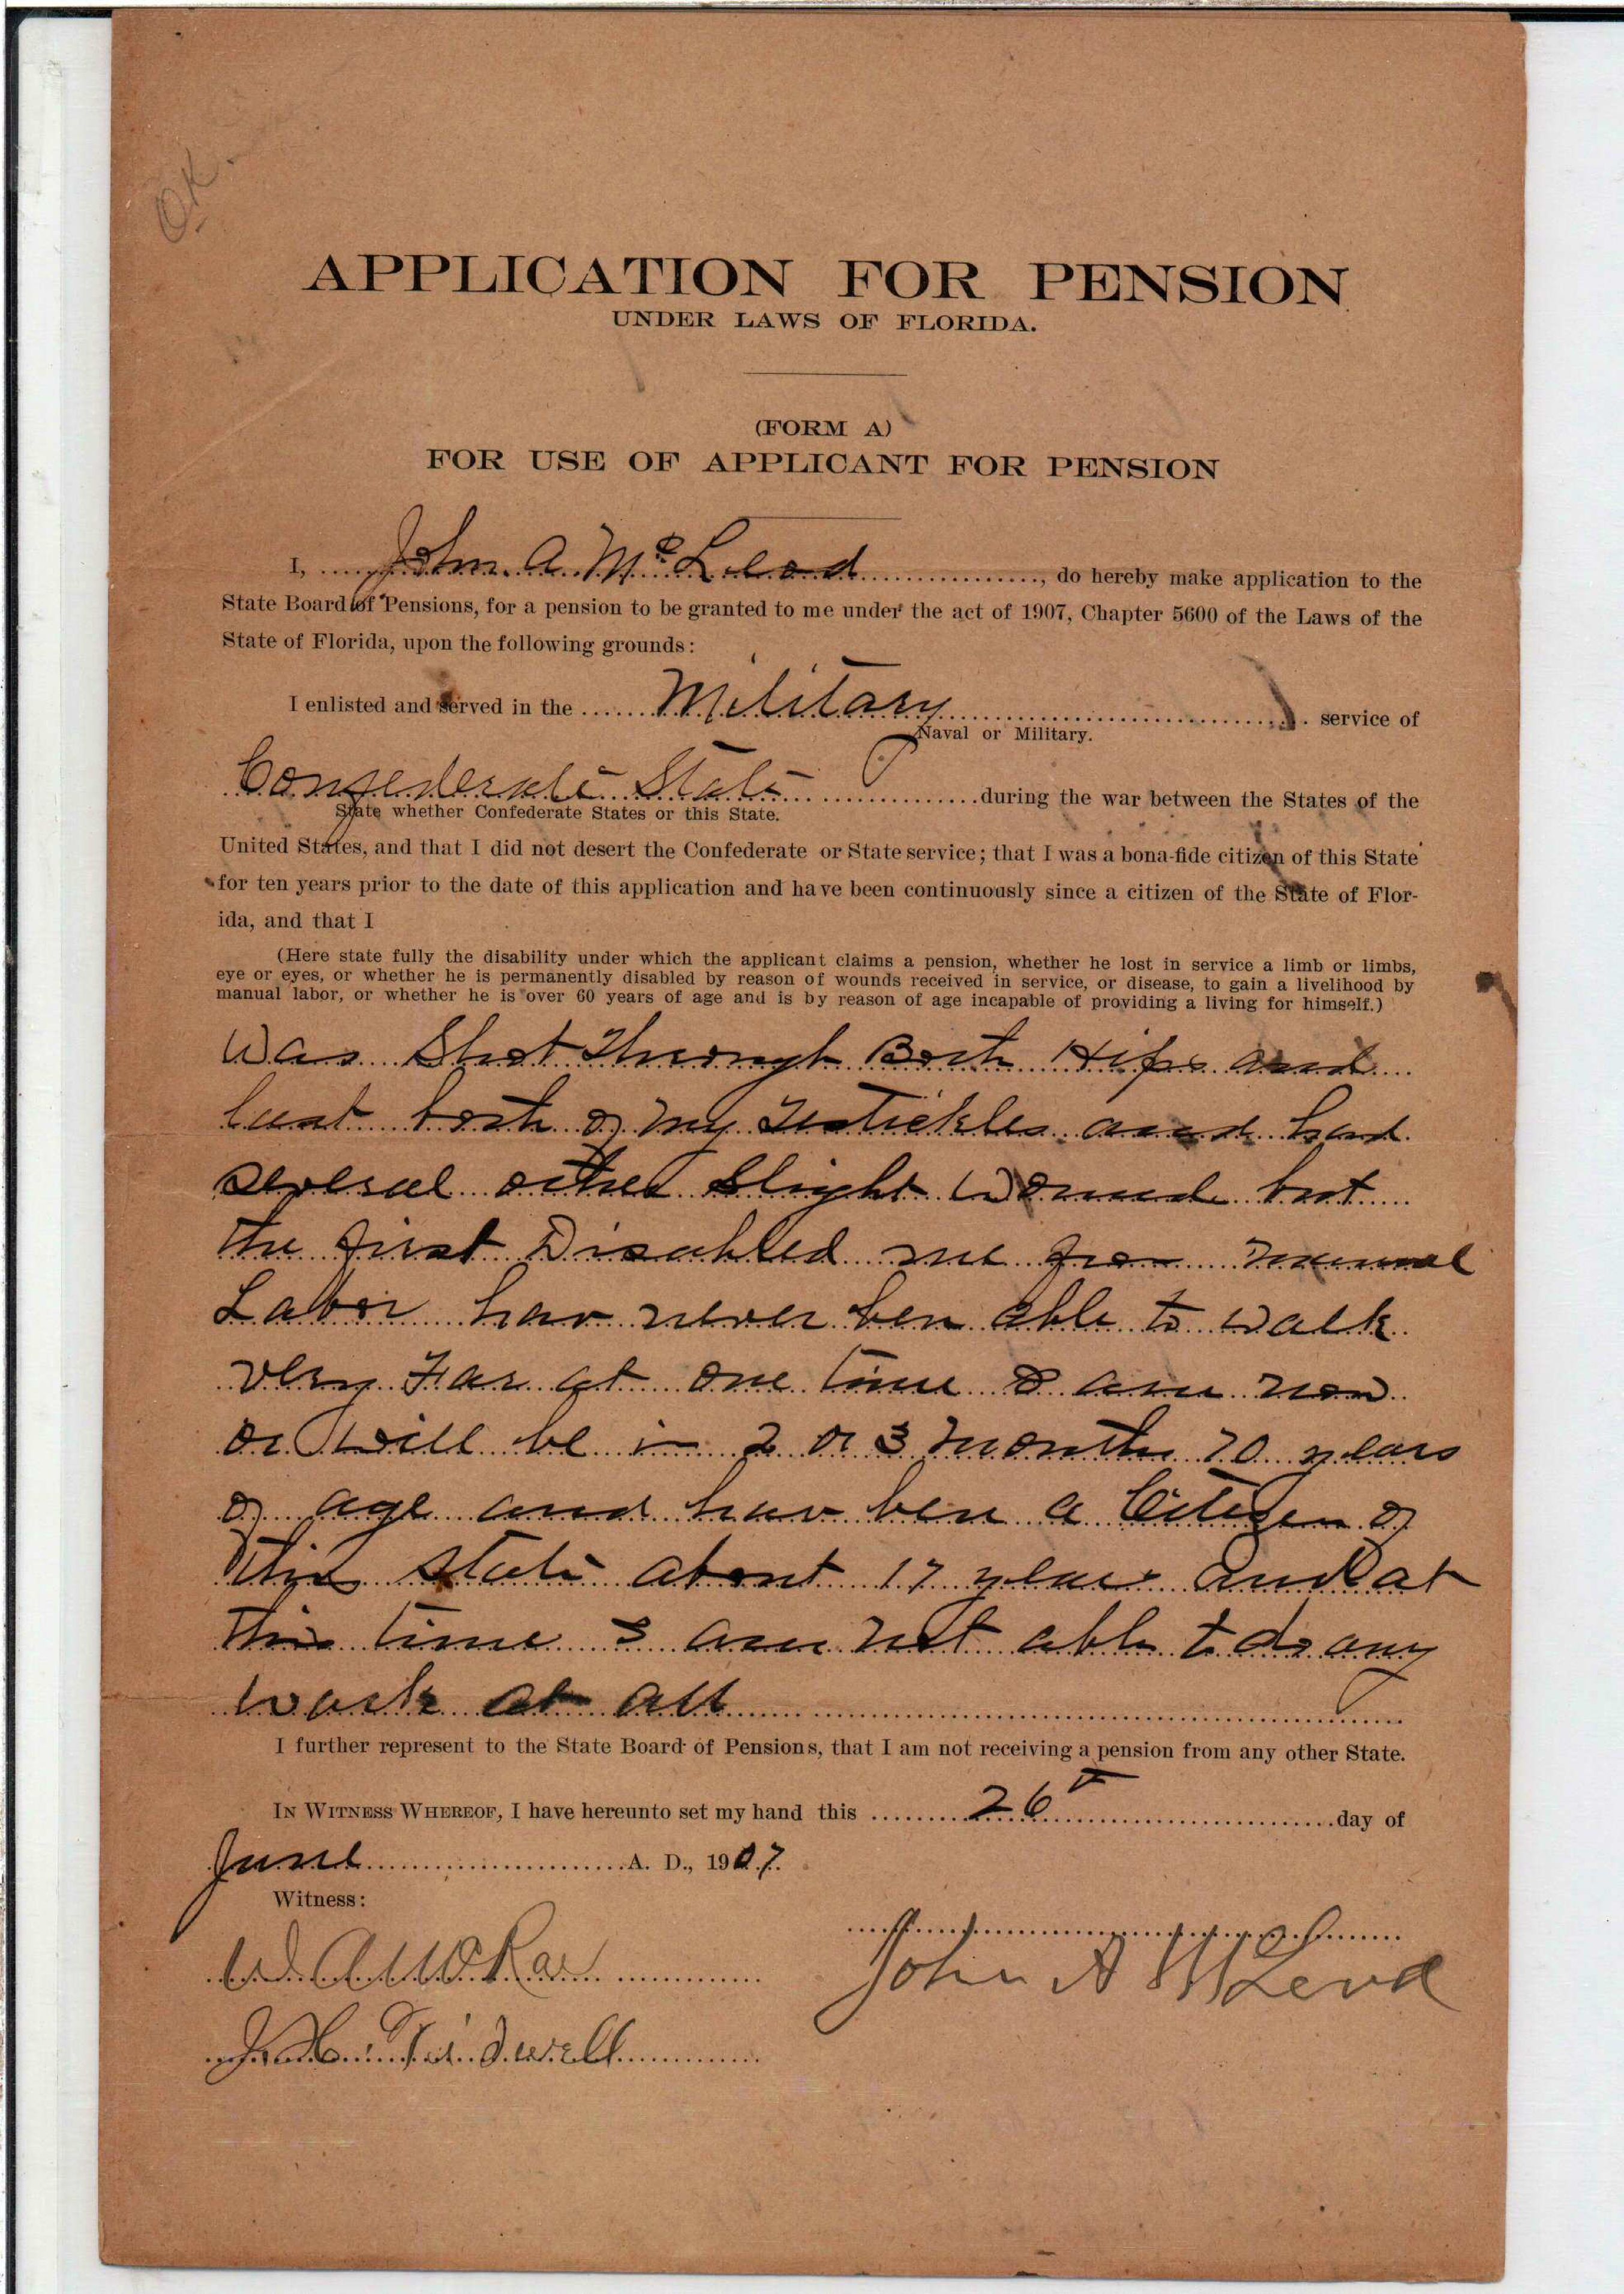 OK.
APPLICATION FOR PENSION
UNDER LAWS OF FLORIDA.
(FORM A)
FOR USE OF APPLICANT FOR PENSION
I, John A. McLeod, do hereby make application to the
State Board of Pensions, for a pension to be granted to me under the act of 1907, Chapter 5600 of the Laws of the
State of Florida, upon the following grounds:
I enlisted and served in the Military service of
Naval or Military.
Confederate State during the war between the States of the
State whether Confederate States or this State.
United States, and that I did not desert the Confederate or State service; that I was a bona-fide citizen of this State
for ten years prior to the date of this application and have been continuously since a citizen of the State of Flor-
ida, and that I
(Here state fully the disability under which the applicant claims a pension, whether he lost in service a limb or limbs,
eye or eyes, or whether he is permanently disabled by reason of wounds received in service, or disease, to gain a livelihood by
manual labor, or whether he is over 60 years of age and is by reason of age incapable of providing a living for himself.)
Was Shot Through Both Hips and
lust both of my Testickles and had
several other Slight Wound but
the first Disabled me from manual
Labor hav never ben able to walk
very Far at one time I am now
or will be in 2 or 3 months 70 years
of age and hav ben a Citizen of
this State about 17 years and at
this time I am not able to do any
work at all
I further represent to the State Board of Pensions, that I am not receiving a pension from any other State.
IN WITNESS WHEREOF, I have hereunto set my hand this 26 day of
June A. D., 1907.
Witness:
W. A. McRae
John A McLeod
J. H. Tidwell